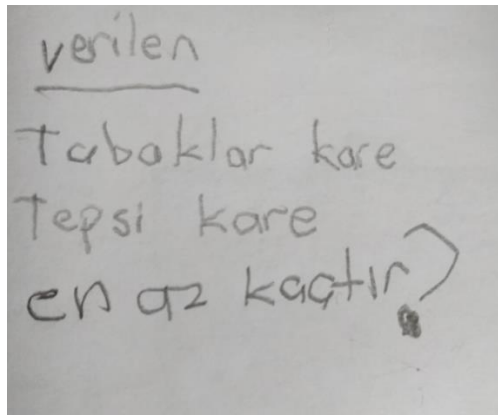 verilen
Tabaklar kare
Tepsi kare
en az kaçtır?